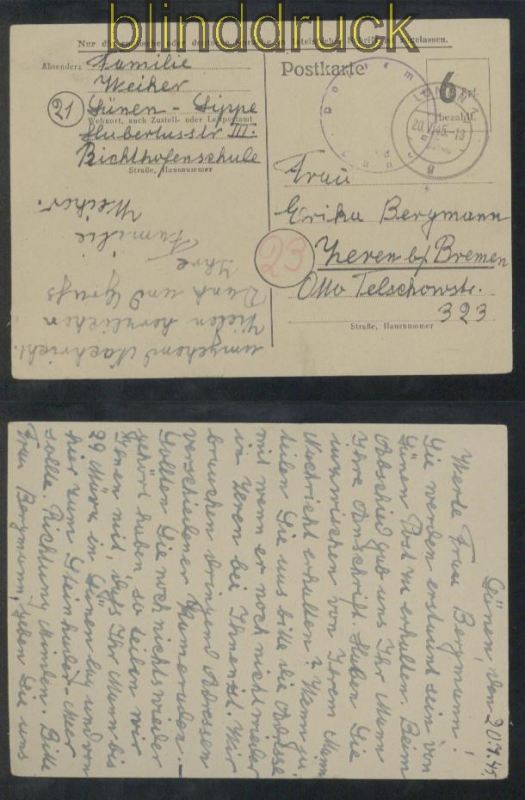 blinddruck
Absender: Familie
Weiker
21 Lünen-Lippe
Wohnort, auch Zustell- oder Leitpostamt
Hubertusstr III.
Richthofenschule
Straße, Hausnummer
umgehend Nachricht.
Vielen herzlichen
Dank und Gruß
Ihre
Familie
Weiker.
Postkarte
6 Rpf.
bezahlt
Frau
Erika Bergmann
23 Zeven b/ Bremen
Otto Telschowstr.
323
Straße, Hausnummer
Lünen, den 20.7.45.
Werte Frau Bergmann!
Sie werden erstaunt sein von
Lünen Post zu erhalten. Beim
Abschied gab uns Ihr Mann
Ihre Anschrift. Haben Sie
inzwischen von Ihrem Mann
Nachricht erhalten? Wenn ja,
teilen Sie uns bitte die Adresse
mit wenn er noch nicht wieder
in Zeven bei Ihnen ist. Wir
brauchen dringend Adressen
verschiedener Kameraden. –
Sollten Sie noch nichts wieder
gehört haben so teilen wir
Ihnen mit, daß Ihr Mann bis
29 März in Lünen lag und von
hier zum Steinhuder-Meer
sollte. Richtung Minden. Bitte
Frau Bergmann, geben Sie uns